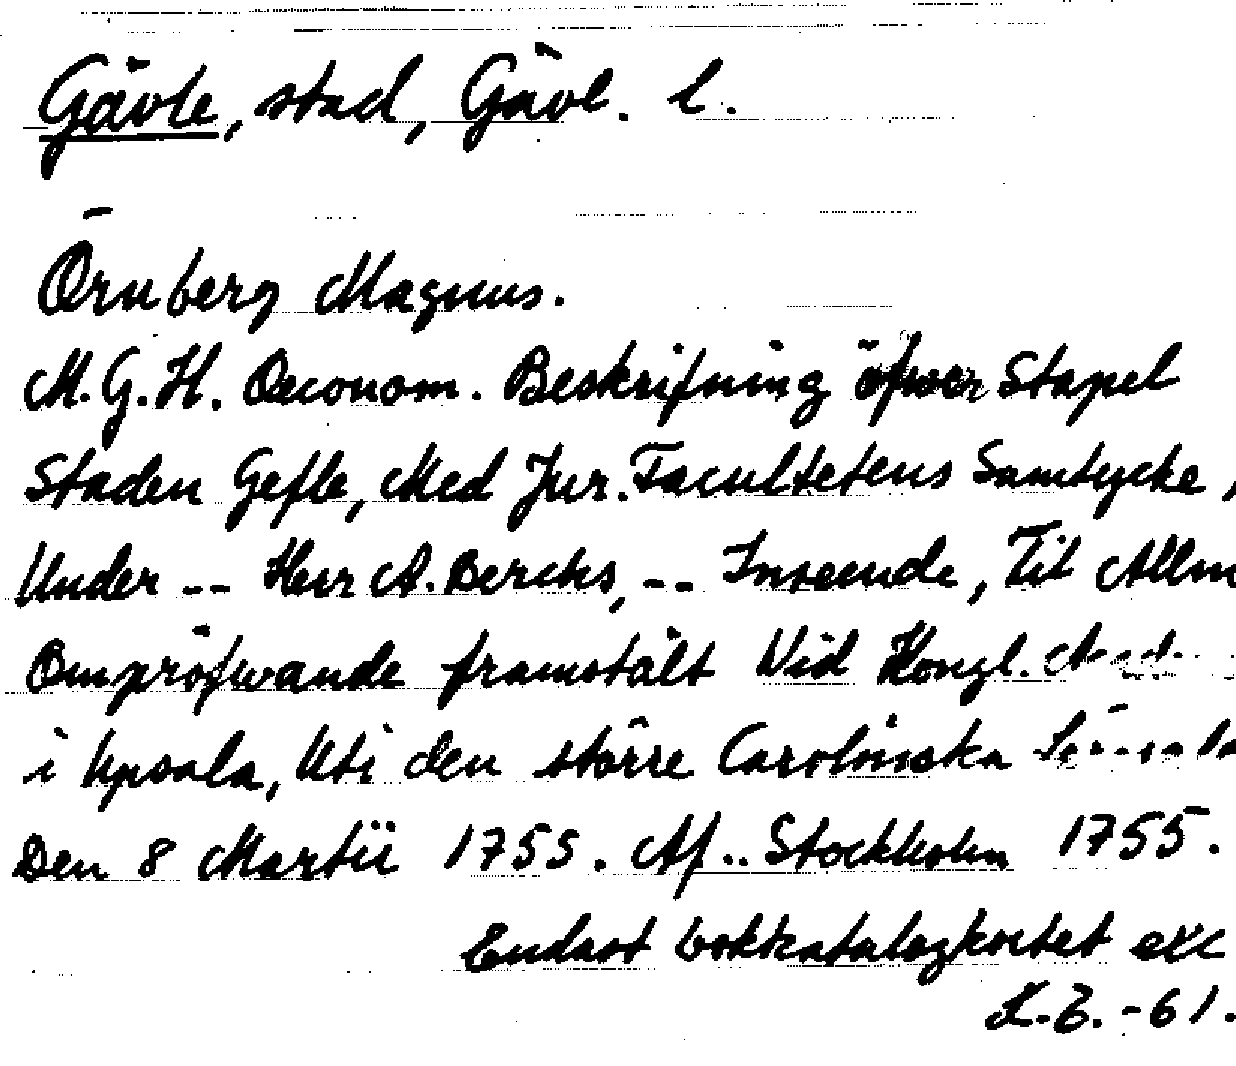 Gävle, stad, Gävl. l.
Örnberg Magnus.
M.G.H. Oeconom. Beskrifning öfwer Stapel
Staden Gefle, Med Jur. Facultetens Samtycke,
Under -- Herr A. Berchs, -- Inseende, Til Allm
Ompröfwande framstält Vid Kongl.
i Upsala, Uti den större Carolinska
Den 8 Martii 1755. Af.. Stockholm 1755.
Endast bokkatalogkortet exc
K.B. -61.